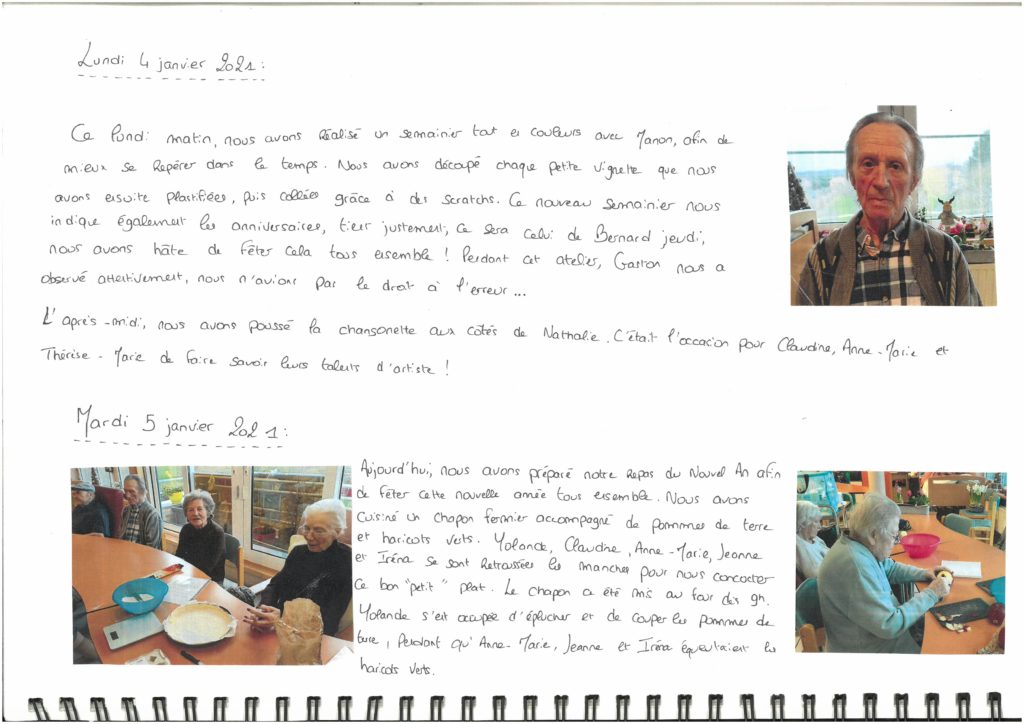 Lundi 4 janvier 2021 :
Ce lundi matin, nous avons réalisé un semainier tout en couleurs avec Manon, afin de
mieux se repérer dans le temps. Nous avons découpé chaque petite vignette que nous
avons ensuite plastifiées, puis collées grâce à des scratchs. Ce nouveau semainier nous
indique également les anniversaires, tiens justement, ce sera celui de Bernard jeudi,
nous avons hâte de fêter cela tous ensemble ! Pendant cet atelier, Gaston nous a
observé attentivement, nous n'avions pas le droit à l'erreur ...
L'après-midi, nous avons poussé la chansonette aux côtés de Nathalie. C'était l'occasion pour Claudine, Anne-Marie et
Thérèse-Marie de faire savoir leurs talents d'artiste !
Mardi 5 janvier 2021 :
Aujourd'hui, nous avons préparé notre repas du Nouvel An afin
de fêter cette nouvelle année tous ensemble. Nous avons
cuisiné un chapon fermier accompagné de pommes de terre
et haricots verts. Yolande, Claudine, Anne-Marie, Jeanne
et Iréna se sont retroussées les manches pour nous concocter
ce bon "petit" plat. Le chapon a été mis au four dès 9h.
Yolande s'est occupée d'éplucher et de couper les pommes de
terre, pendant qu'Anne-Marie, Jeanne et Iréna équeutaient les
haricots verts.